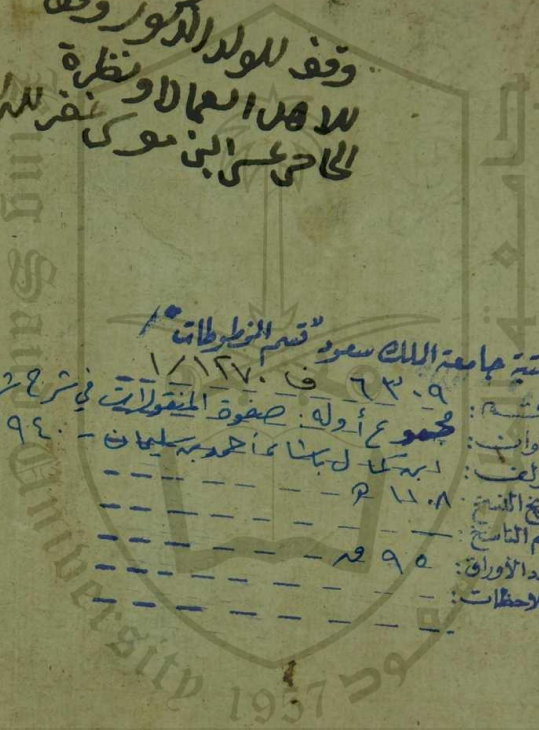 وقف للولد الذكور وقف
للاهل العمال او نظرة
الحاج عيسى ابن موسى غفر
مكتبة جامعة الملك سعود "قسم المخطوطات"
٦٣٠٩ ف ١/١٢٧٠
مجموع أوله: صفوة المنقولات في شرح
ابن كمال باشا، أحمد بن سليمان - ٩٤٠
تاريخ النسخ: ١١٠٨ هـ
اسم الناسخ:
عدد الأوراق: ٩٥ ق
ملاحظات:
King Saud University
1957